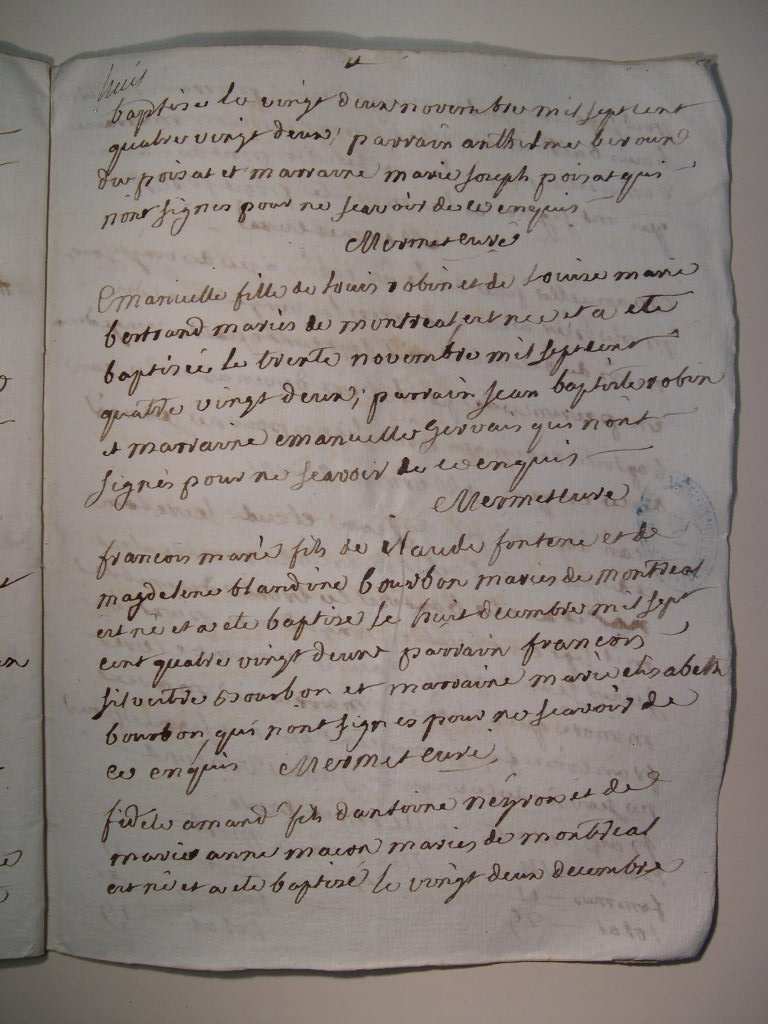 huit
baptisé le vingt deux novembre mil sept cent
quatre vingt deux; parrain anthelme beroux
du poisat et marraine marie joseph poisat qui
nont signes pour ne scavoir de ce enquis
Mermet curé
Emanuelle fille de Louis robin et de Louise marie
bertrand mariés de montreal est née et a eté
baptisée le trente novembre mil sept cent
quatre vingt deux; parrain jean baptiste robin
et marraine emanuelle gervais qui nont
signés pour ne scavoir de ce enquis
Mermet curé
francois marie fils de claude fontene et de
magdelene blandine bourbon maries de montreal
est né et a eté baptisé le huit decembre mil sept
cent quatre vingt deux parrain francois
silvestre bourbon et marraine marie elisabeth
bourbon, qui nont signes pour ne scavoir de
ce enquis Mermet curé
fidele amand fils dantoine neyron et de
marie anne macon maries de montreal
est né et a eté baptizé le vingt deux decembre